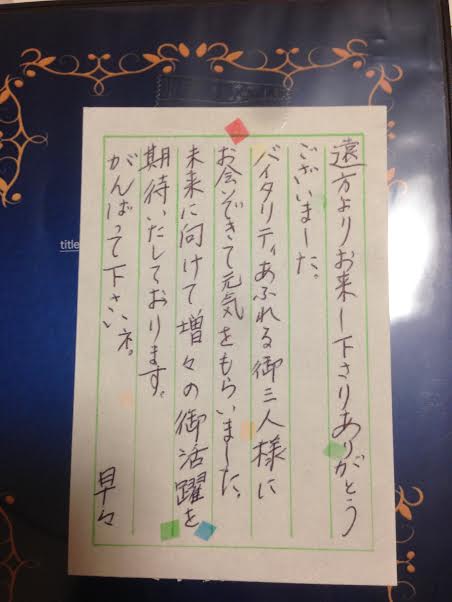 遠方よりお来し下さりありがとう
ございました。
バイタリティあふれる御三人様に
お会いできて元気をもらいました。
未来に向けて増々の御活躍を
期待いたしております。
がんばって下さいネ。
早々
title